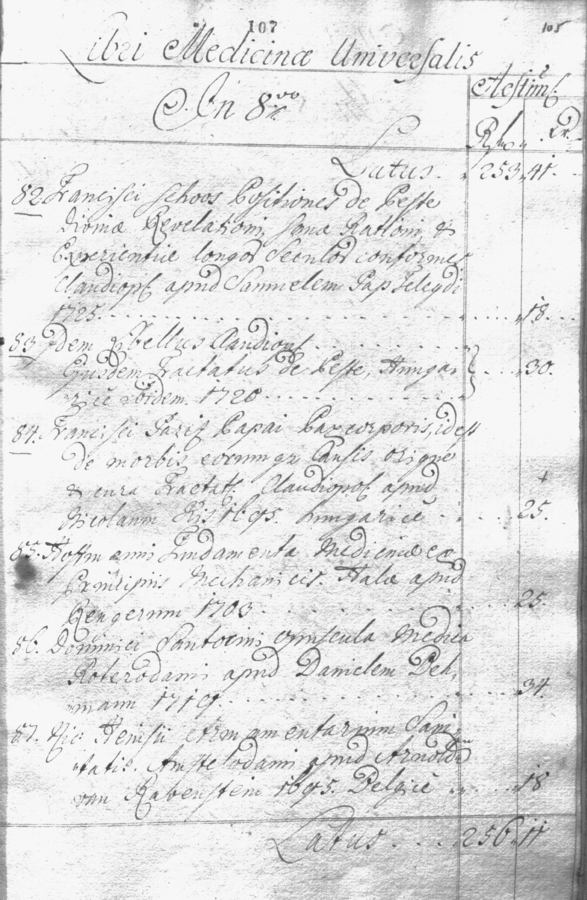 107
105
Libri Medicinæ Universalis
In 8vo
Æstim:
Rf. Xr.
Latus. 253,41.
82. Francisci Schoos Positiones de Peste
Divinæ Revelationi, Sanæ Rationi, &
Experientiæ longor Seculor conformes
Claudiop. apud Samuelem Pap Telegdi
1725. 18.
83. Idem Libellus Claudiop.
Ejusdem Tractatus de Peste, Hungar 30.
rice ibidem. 1720
84. Francisci Pariz Papai Pax corporis, id est
de morbis eorumq Causis origine
& cura Tractat. Claudiopol apud
Nicolaum Kis 1695. hungarice 25.
85. Hoffmanni Fundamenta Medicinæ ex
Principiis Mechanicis. Halæ apud
Rengerum 1703. 25.
86. Dominici Santorini opuscula Medica
Roterodami apud Danielem Bek,
mann 1719. 34.
87. Henisii Armamentarium Sani,
tatis. Amstelodami apud Arnoldu
van Rabenstein 1695. Belgice 18
Latus. 256.11